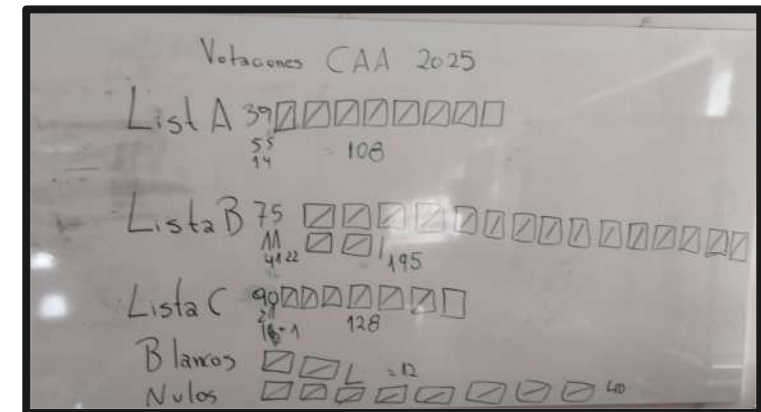 Votaciones CAA 2025
List A 39
55
14
= 108
Lista B 75
11
41 22
195
Lista C 90
128
Blancos = 12
Nulos 40